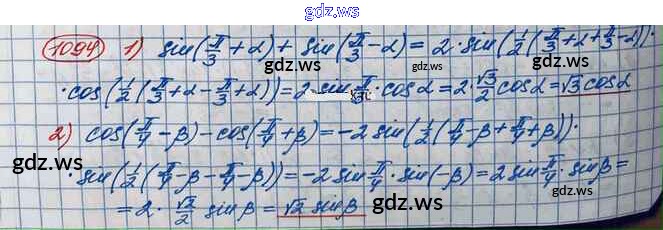 gdz.ws
1094 1) sin(π/3 + α) + sin(π/3 - α) = 2·sin(1/2(π/3 + α + π/3 - α))·
gdz.ws
·cos(1/2(π/3 + α - π/3 + α)) = 2·sin π/3 · cos α = 2·√3/2 cos α = √3 cos α
2) cos(π/4 - β) - cos(π/4 + β) = -2 sin(1/2(π/4 - β + π/4 + β))·
gdz.ws gdz.ws
·sin(1/2(π/4 - β - π/4 - β)) = -2 sin π/4 · sin(-β) = 2 sin π/4 · sin β =
= 2 · √2/2 sin β = √2 sin β
gdz.ws